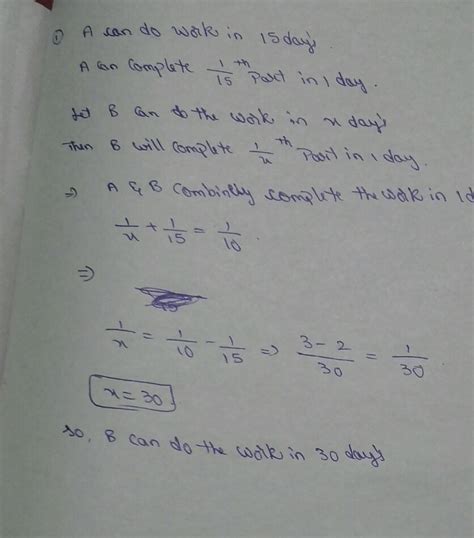 ① A can do work in 15 days.
A can complete 1/15 th part in 1 day.
Let B can do the work in x days
Then B will complete 1/x th part in 1 day.
⇒ A & B combinly complete the work in 1
1/x + 1/15 = 1/10.
⇒
1/x = 1/10 - 1/15 ⇒ 3-2/30 = 1/30
x = 30.
So, B can do the work in 30 days